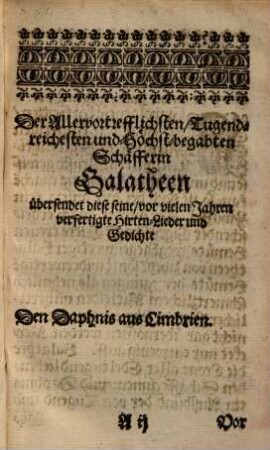 Der Allervortrefflichsten/Tugend-
reichesten und Höchst-begabten
Schäfferin
Galatheen
übersendet diese seine/vor vielen Jahren
verfertigte Hirten-Lieder und
Gedichte
Den Daphnis aus Cimbrien.
A ij Vor